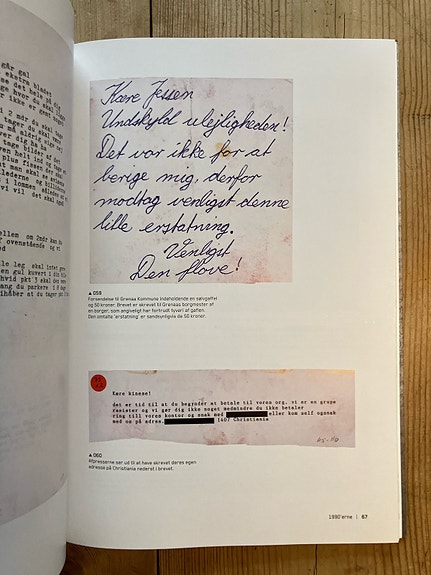 går gal
ekstra bladet
2 mdr du skal
tager du skal
tage ha
ren helt ind og
vi vil det skal også
mellem om 2mdr kan du
ovenstående og vi
ille leg skal intet
en gul kuvert i din
hvid pkt 3 skal den
ang du parkere i 8 dage
ihåber at du tager
Kære Jessen
Undskyld ulejligheden!
Det var ikke for at
berige mig, derfor
modtag venligst denne
lille erstatning.
Venligst
Den flove!
▲ 059
Forsendelse til Grenaa Kommune indeholdende en sølvgaffel
og 50 kroner. Brevet er skrevet til Grenaas borgmester af
en borger, som angiveligt har fortrudt tyveri af gaflen.
Den omtalte 'erstatning' er sandsynligvis de 50 kroner.
Kære kinese!
det er tid til at du begynder at betale til vores org. vi er en grupe
rasister og vi gør dig ikke noget medmindre du ikke betaler
ring till vores kontor og snak med eller kom self ogsnak
med os på adras. 1407 Christiania
▲ 060
Afpresserne ser ud til at have skrevet deres egen
adresse på Christiania nederst i brevet.
1990'erne | 67